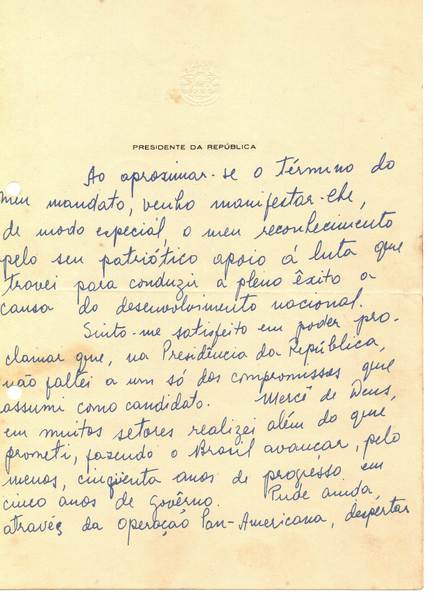 PRESIDENTE DA REPÚBLICA
Ao aproximar-se o término do
meu mandato, venho manifestar-lhe,
de modo especial, o meu reconhecimento
pelo seu patriótico apoio á luta que
travei para conduzir a pleno êxito a
causa do desenvolvimento nacional.
Sinto-me satisfeito em poder pro-
clamar que, na Presidência da República,
não faltei a um só dos compromissos que
assumi como candidato. Mercê de Deus,
em muitos setores realizei além do que
prometi, fazendo o Brasil avançar, pelo
menos, cinqüenta anos de progresso em
cinco anos de govêrno. Pude ainda,
através da Operação Pan-Americana, despertar